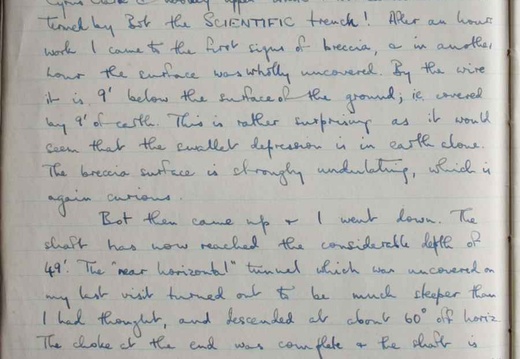 tinued by Bot the SCIENTIFIC trench! After an hours
work I came to the first signs of breccia, & in another
hour the surface was wholly uncovered. By the wire
it is 9' below the surface of the ground; ie. covered
by 9' of earth. This is rather surprising as it would
seem that the swallet depression is in earth alone.
The breccia surface is strongly undulating, which is
again curious.
Bot then came up & I went down. The
shaft has now reached the considerable depth of
49'. The "near horizontal" tunnel which was uncovered on
my last visit turned out to be much steeper than
I had thought, and descended at about 60° off horiz
The choke at the end was complete & the shaft is